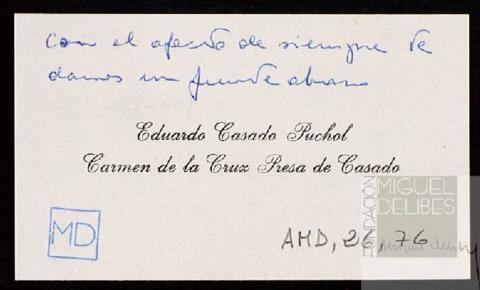 Con el afecto de siempre te
damos un fuerte abrazo
Eduardo Casado Puchol
Carmen de la Cruz Presa de Casado
FUNDACIÓN
MIGUEL
DELIBES
MD
AMD, 26, 76